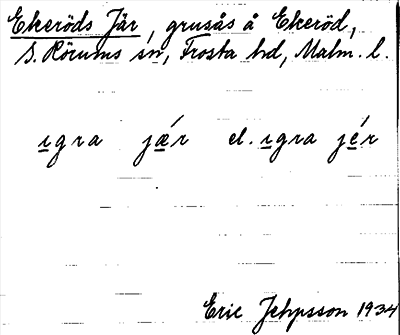 Ekeröds Jär, grusås å Ekeröd,
S. Rörums sn, Frosta hd, Malm. l.
ıgra jǽr el. ıgra jér
Eric Jehpsson 1934